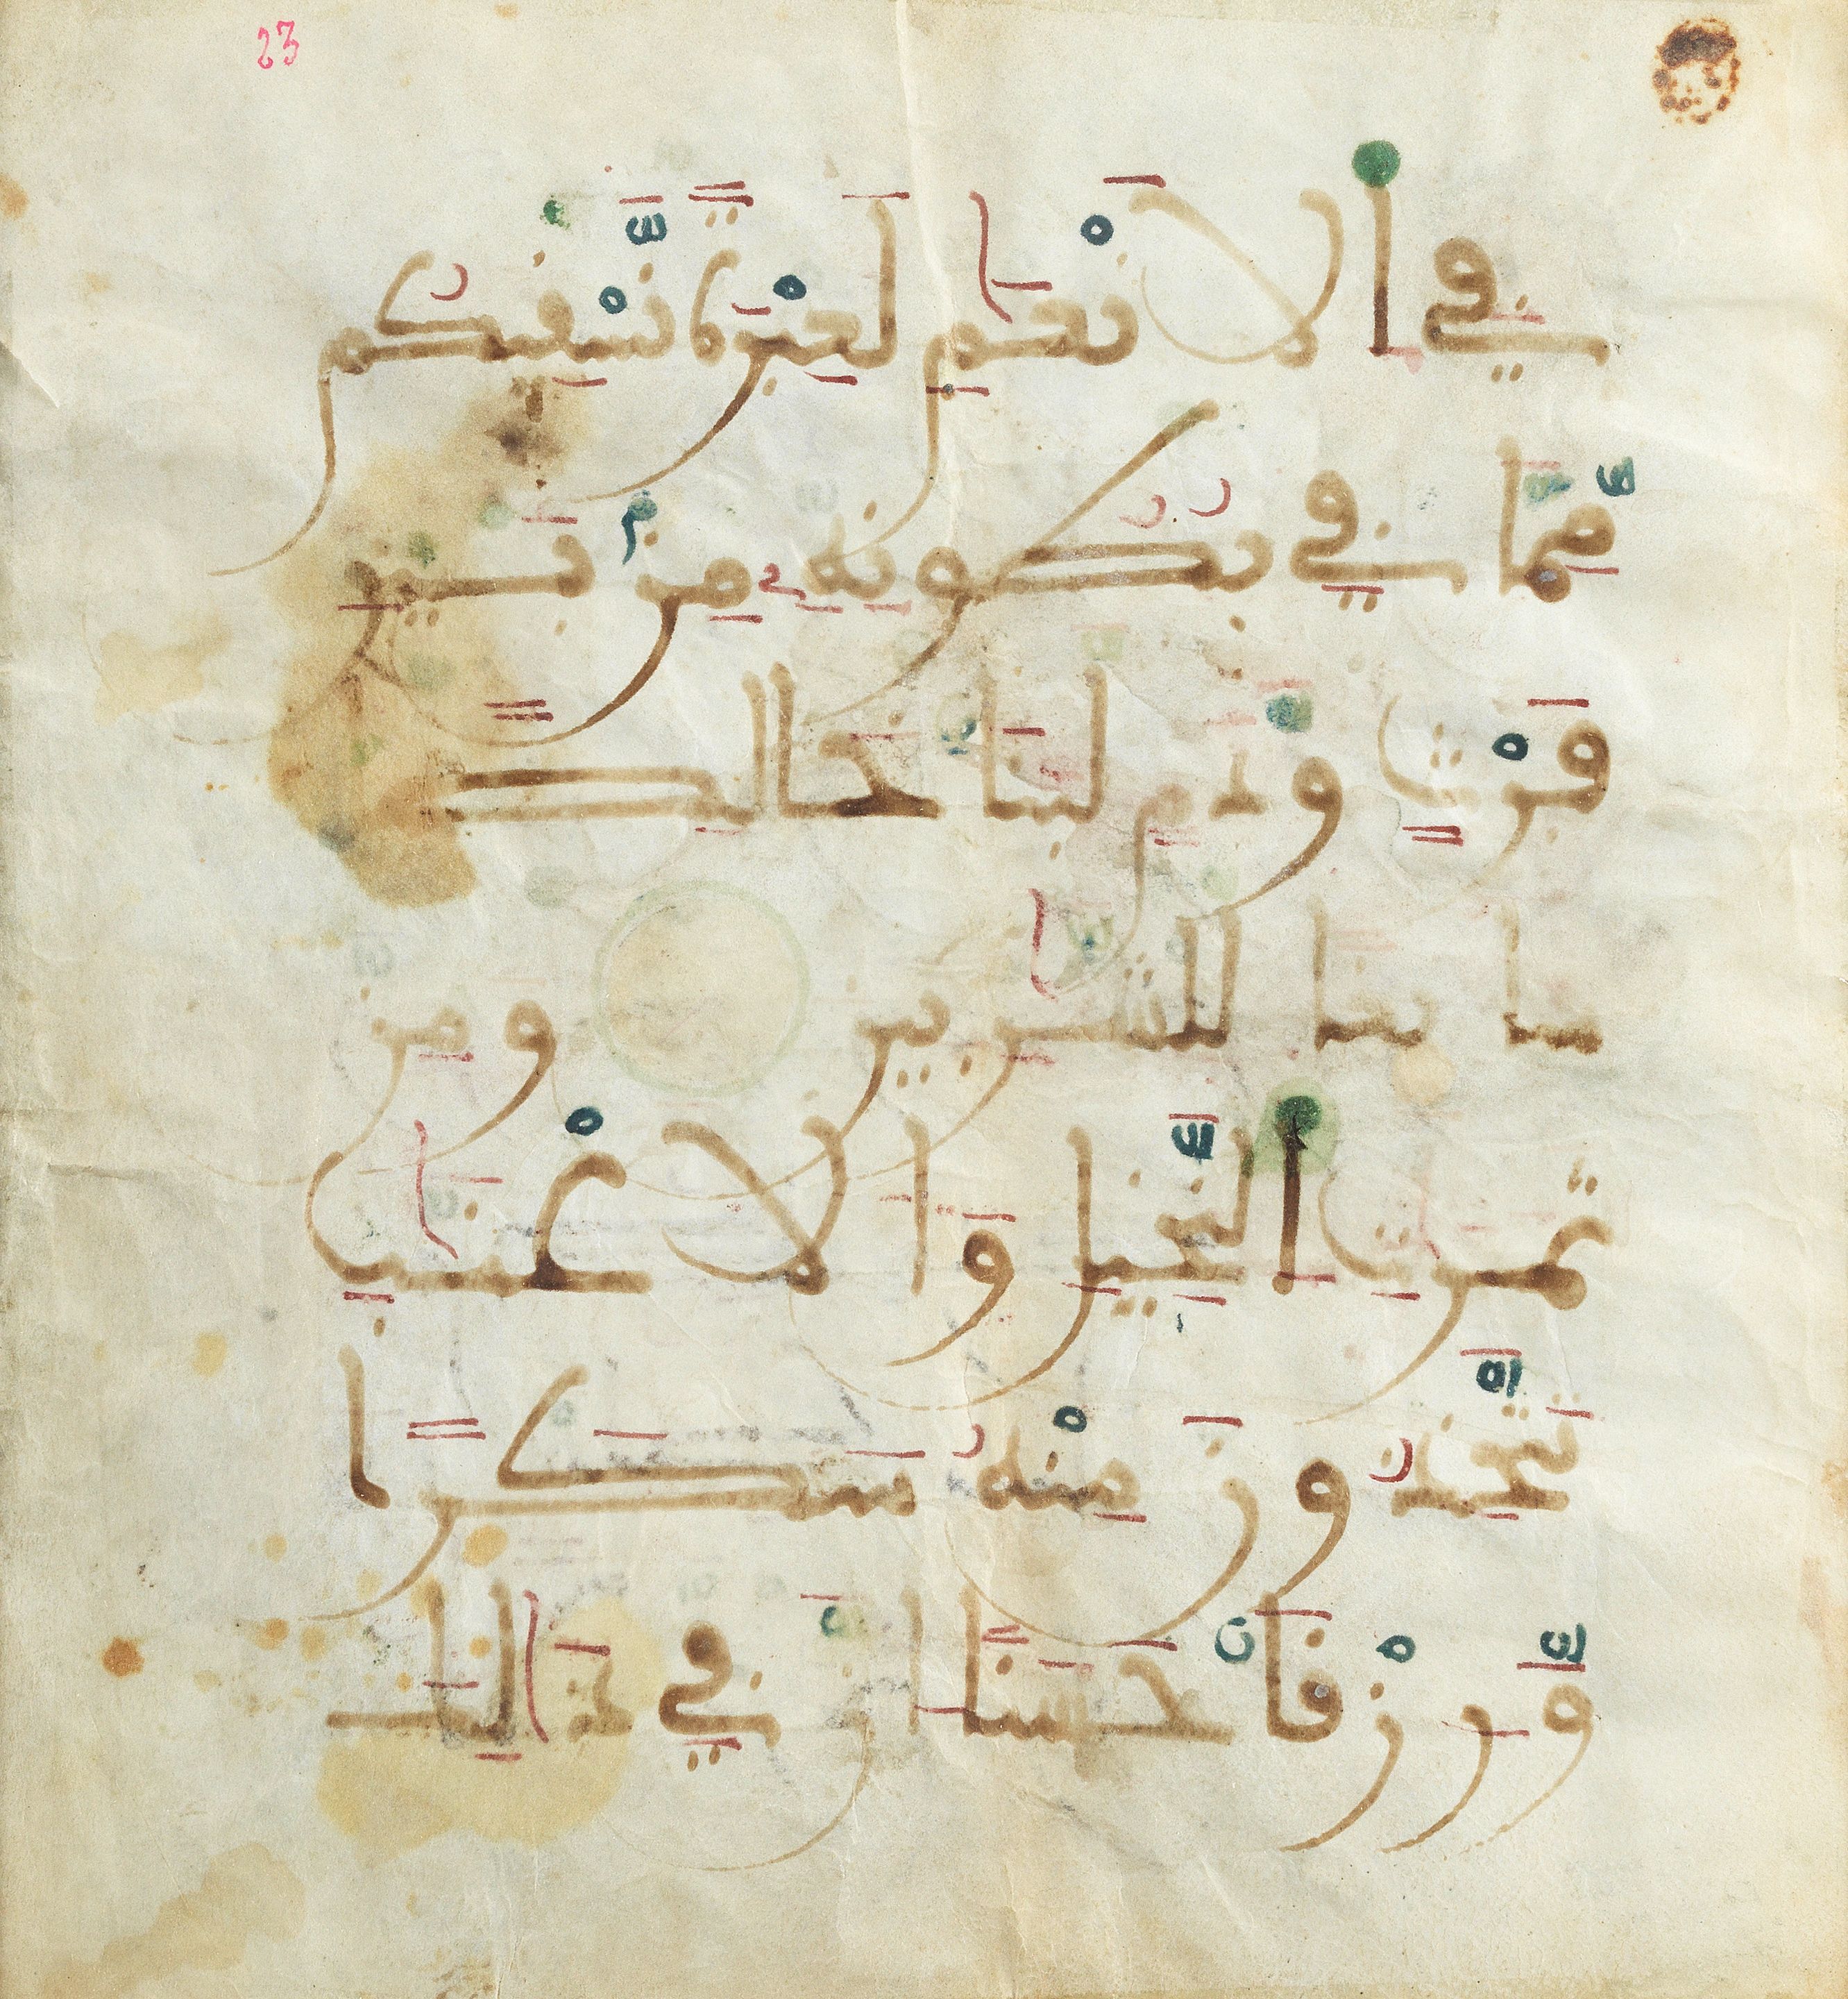 23
فِي اَ۬لَانْعَٰمِ لَعِبْرَةٗ نَّسْقِيكُم
مِّمَّا فِي بُطُونِهِۦ مِنۢ بَيْنِ
فَرْثٖ وَدَمٖ لَّبَناً خَالِصاٗ
سَآئِغاٗ لِّلشَّٰرِبِينَ وَمِن
ثَمَرَٰتِ اِ۬لنَّخِيلِ وَالَاعْنَٰبِ
تَتَّخِذُونَ مِنْهُ سَكَراٗ
وَّرِزْقاً حَسَناً اِنَّ فِي ذَٰلِكَ